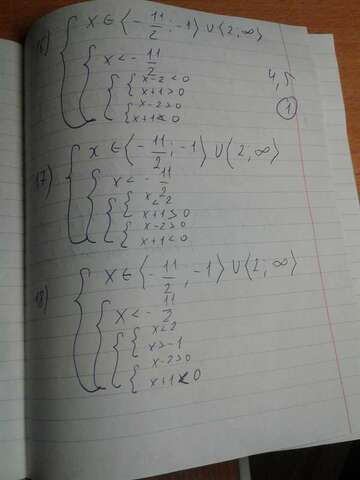 16) { x ∈ ⟨-11/2; -1⟩ ∪ ⟨2, ∞⟩
x < -11/2
x-2 < 0
x+1 > 0
x-2 > 0
x+1 < 0
4,5
1
17) { x ∈ ⟨-11/2; -1⟩ ∪ ⟨2, ∞⟩
x < -11/2
x < 2
x+1 > 0
x-2 > 0
x+1 < 0
18) { x ∈ ⟨-11/2, -1⟩ ∪ ⟨2; ∞⟩
x < -11/2
x < 2
x > -1
x-2 > 0
x+1 < 0